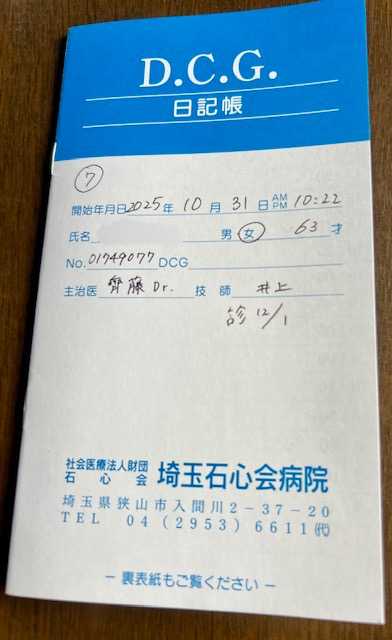 D.C.G.
日記帳
⑦
開始年月日 2025年 10月 31日 AM PM 10:22
氏名 男・女 63才
No. 01749077 DCG
主治医 齊藤 Dr. 技師 井上
診 12/1
社会医療法人財団
石心会 埼玉石心会病院
埼玉県狭山市入間川2-37-20
TEL 04(2953)6611㈹
－裏表紙もご覧ください－